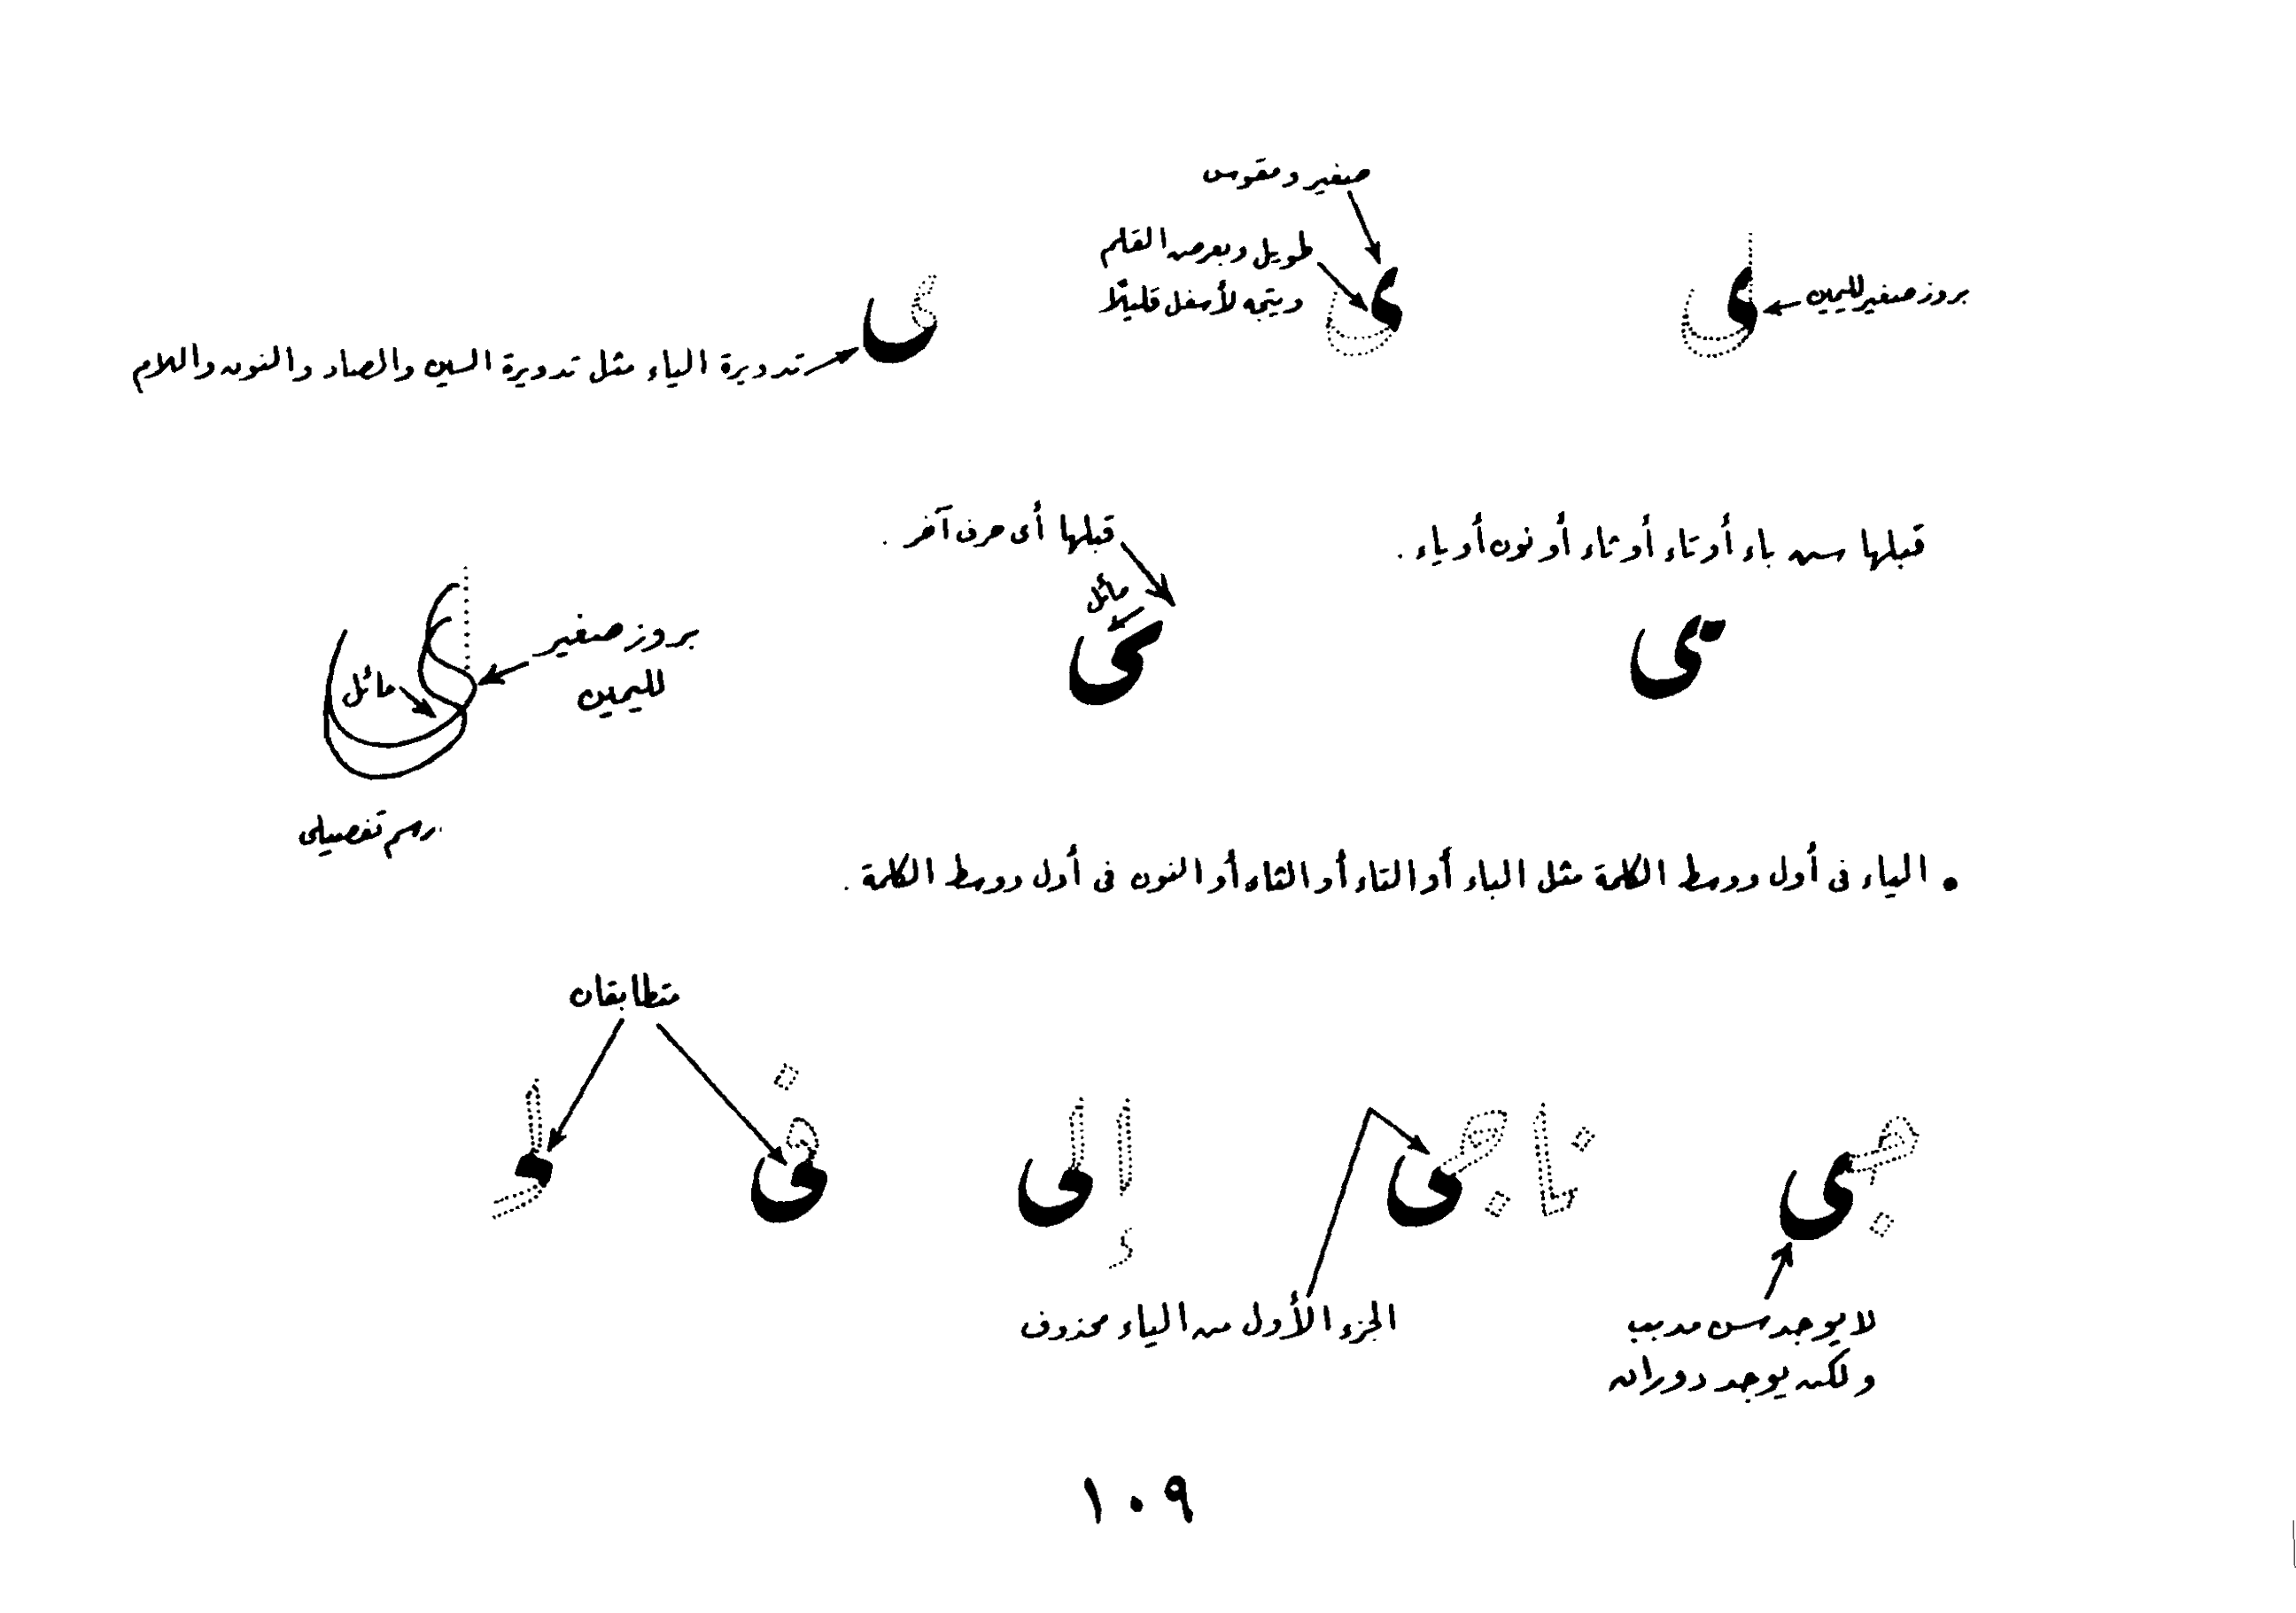 صغير ومقوس
طويل وبعرض القلم
ويتجه لأسفل قليلًا
بروز صغير لليمين
ى
ى
ى
تدويرة الياء مثل تدويرة السين والصاد والنون واللام
قبلها سن باء أو تاء أو ثاء أو نون أو ياء .
قبلها أى حرف آخر .
مائل
بروز صغير
لليمين
مائل
رسم تفصيلى
• الياء فى أول ووسط الكلمة مثل الباء أو التاء أو الثاء أو النون فى أول ووسط الكلمة .
متطابقان
ناجى
إلى
فى
الجزء الأول من الياء محذوف
لا يوجد سن مدبب
ولكن يوجد دوران
١٠٩